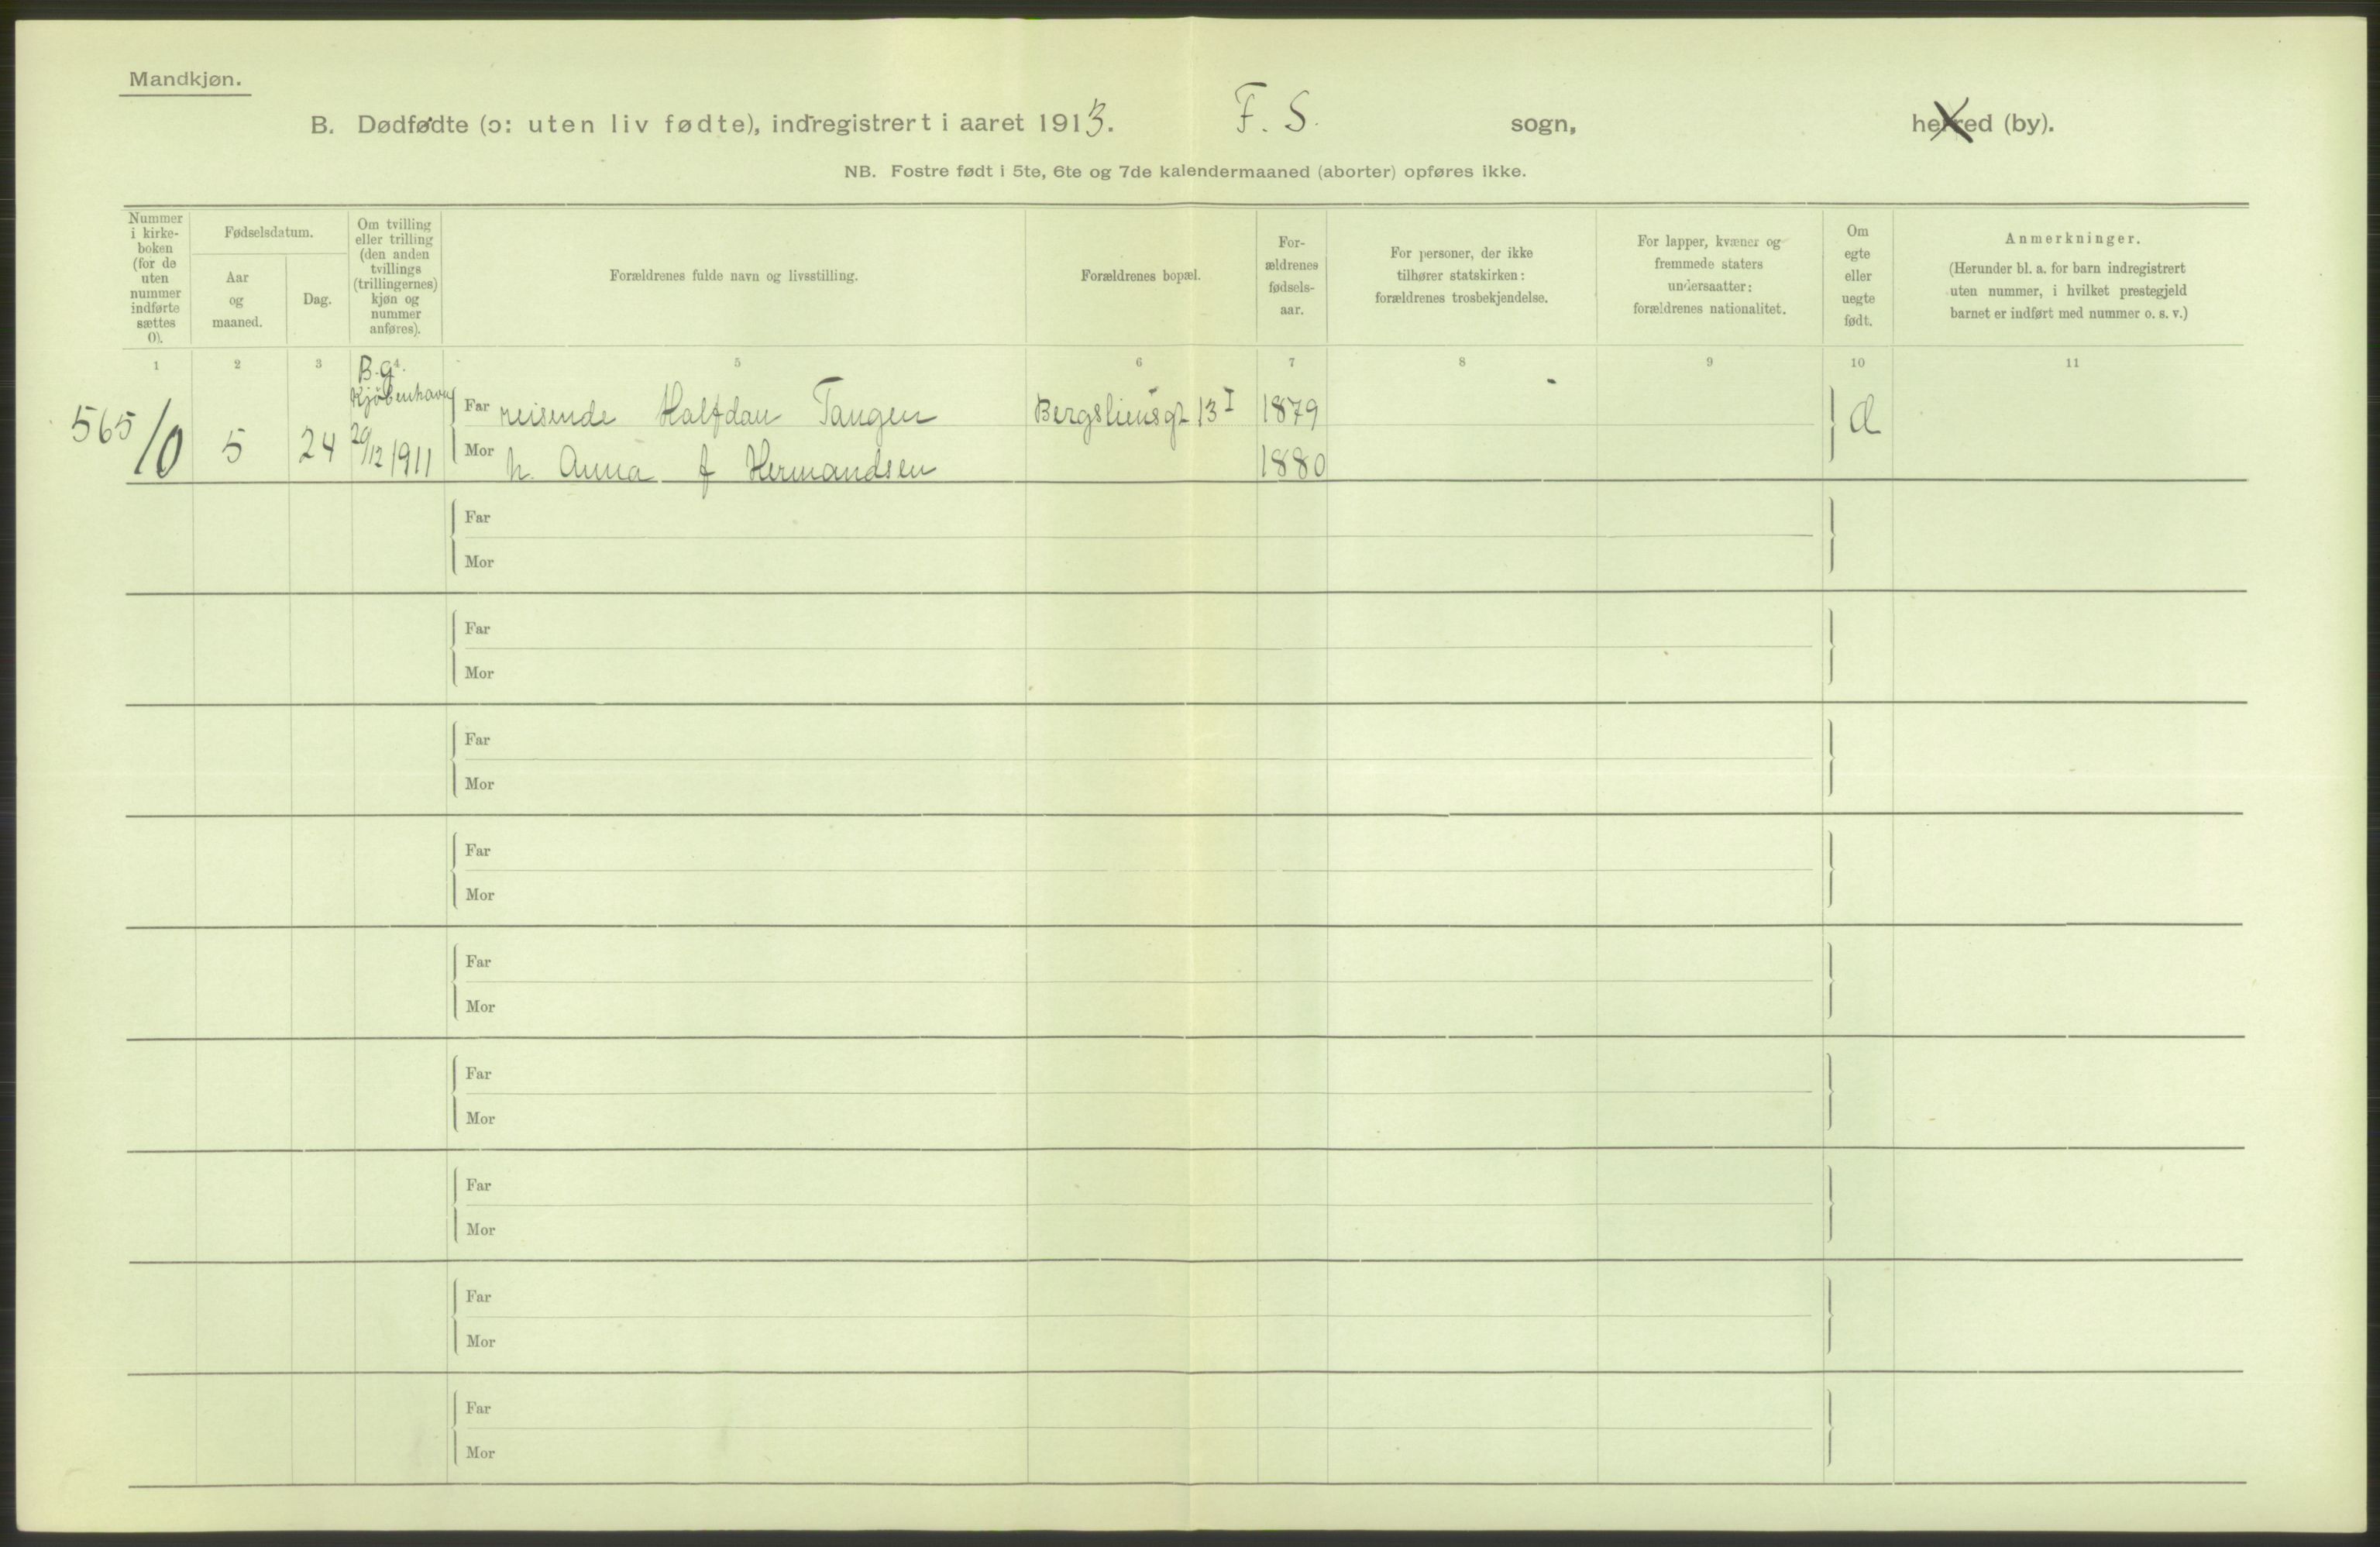 Mandkjøn.
B. Dødfødte (ɔ: uten liv fødte), indregistrert i aaret 1913. F. S. sogn, herred (by).
NB. Fostre født i 5te, 6te og 7de kalendermaaned (aborter) opføres ikke.
Nummer
i kirke-
boken
(for de
uten
nummer
indførte
sættes
0).
Fødselsdatum.
Aar
og
maaned.
Dag.
Om tvilling
eller trilling
(den anden
tvillings
(trillingernes)
kjøn og
nummer
anføres).
Forældrenes fulde navn og livsstilling.
Forældrenes bopæl.
For-
ældrenes
fødsels-
aar.
For personer, der ikke
tilhører statskirken:
forældrenes trosbekjendelse.
For lapper, kvæner og
fremmede staters
undersaatter:
forældrenes nationalitet.
Om
egte
eller
uegte
født.
Anmerkninger.
(Herunder bl. a. for barn indregistrert
uten nummer, i hvilket prestegjeld
barnet er indført med nummer o. s. v.)
1 2 3 4 5 6 7 8 9 10 11
B.g.
Kjøbenhavn
565/0 5 24 29/12 1911
Far reisende Halfdan Tangen Bergsliensgt 13 I 1879
Mor h. Anna f Hermandsen 1880
Far
Mor
Far
Mor
Far
Mor
Far
Mor
Far
Mor
Far
Mor
Far
Mor
Far
Mor
Far
Mor